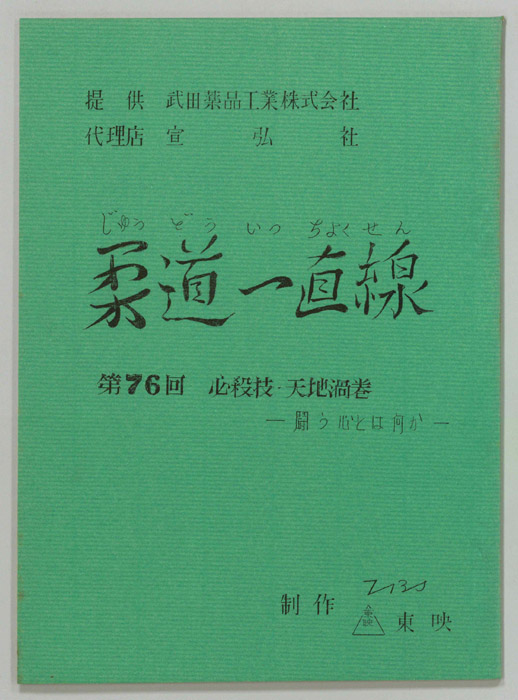 提供 武田薬品工業株式会社
代理店 宣弘社
じゅう どう いっ ちよくせん
柔道一直線
第76回 必殺技・天地渦巻
―闘う心とは何か―
TBS
制作 東映 東映